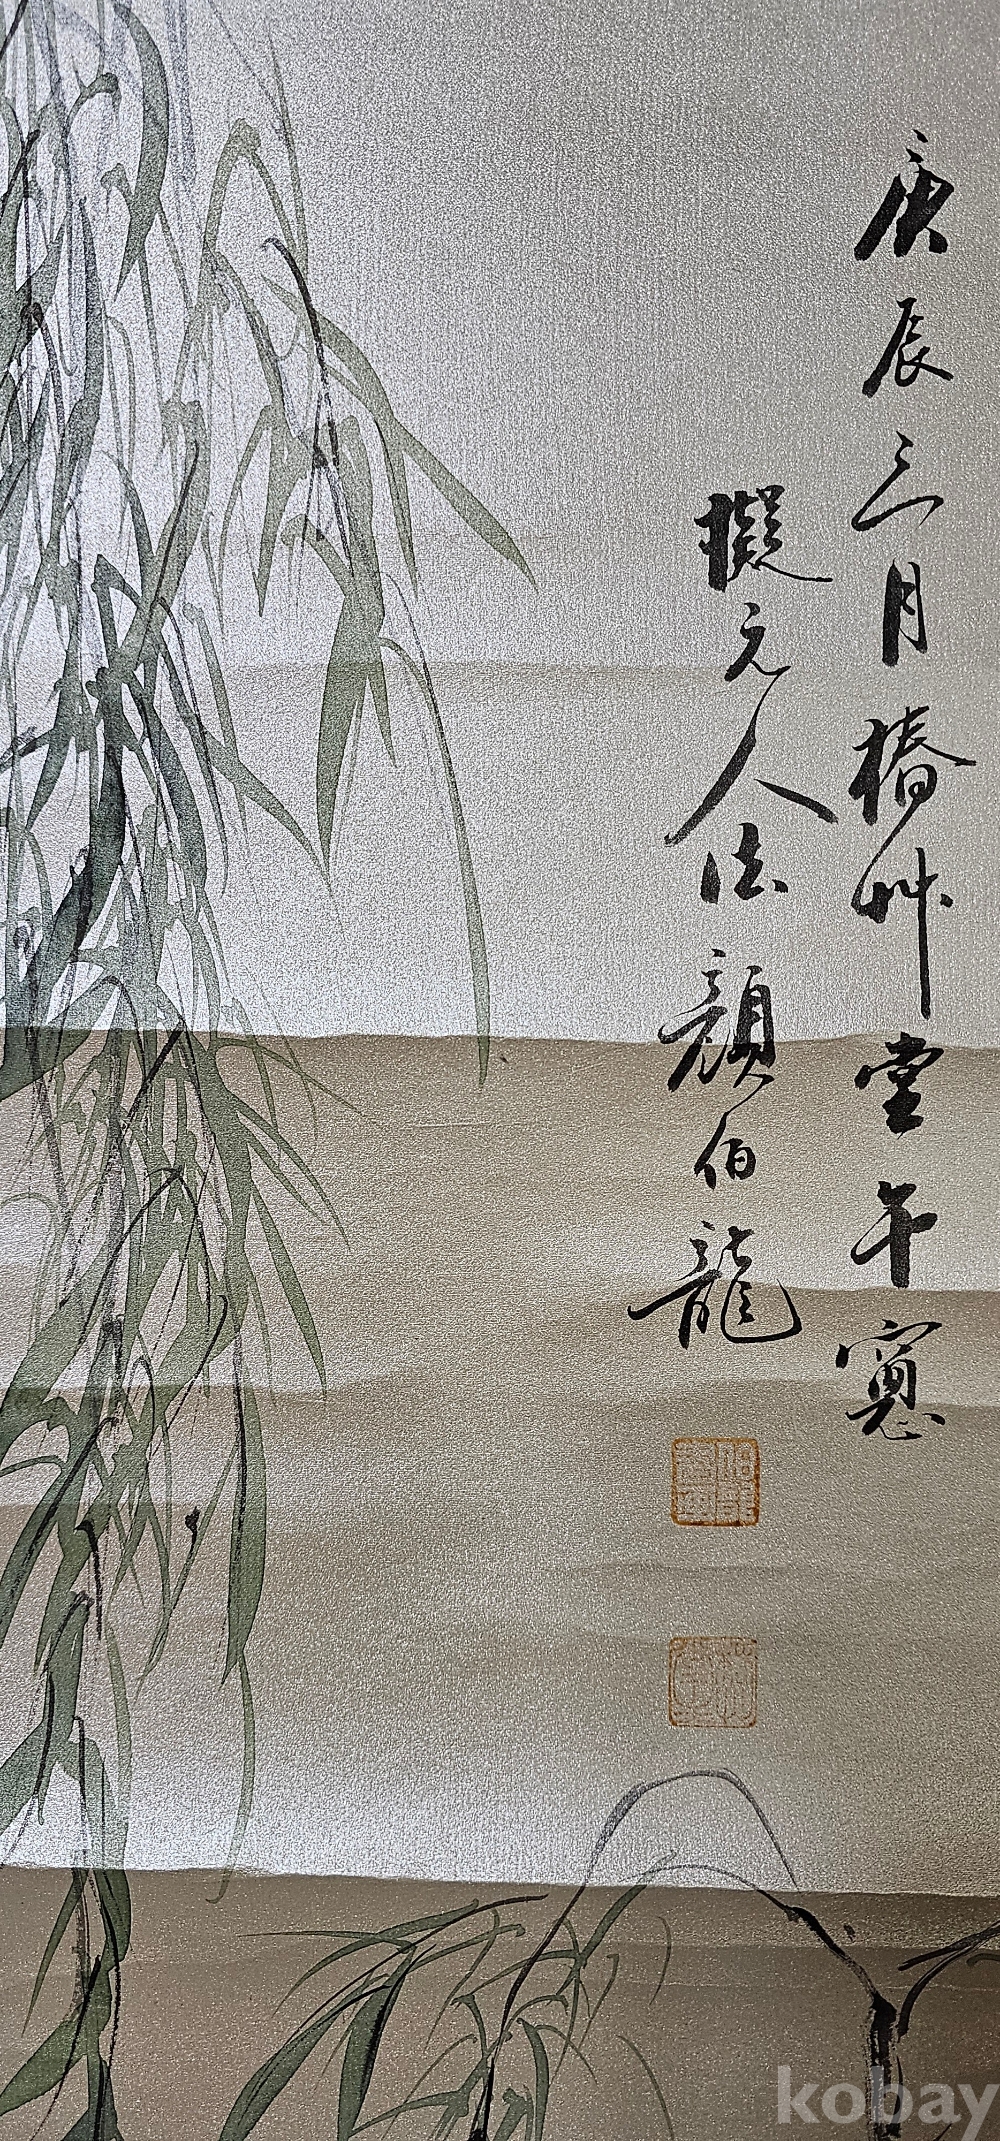 庚辰三月椿艸堂午窻
擬元人法顏伯龍
kobay